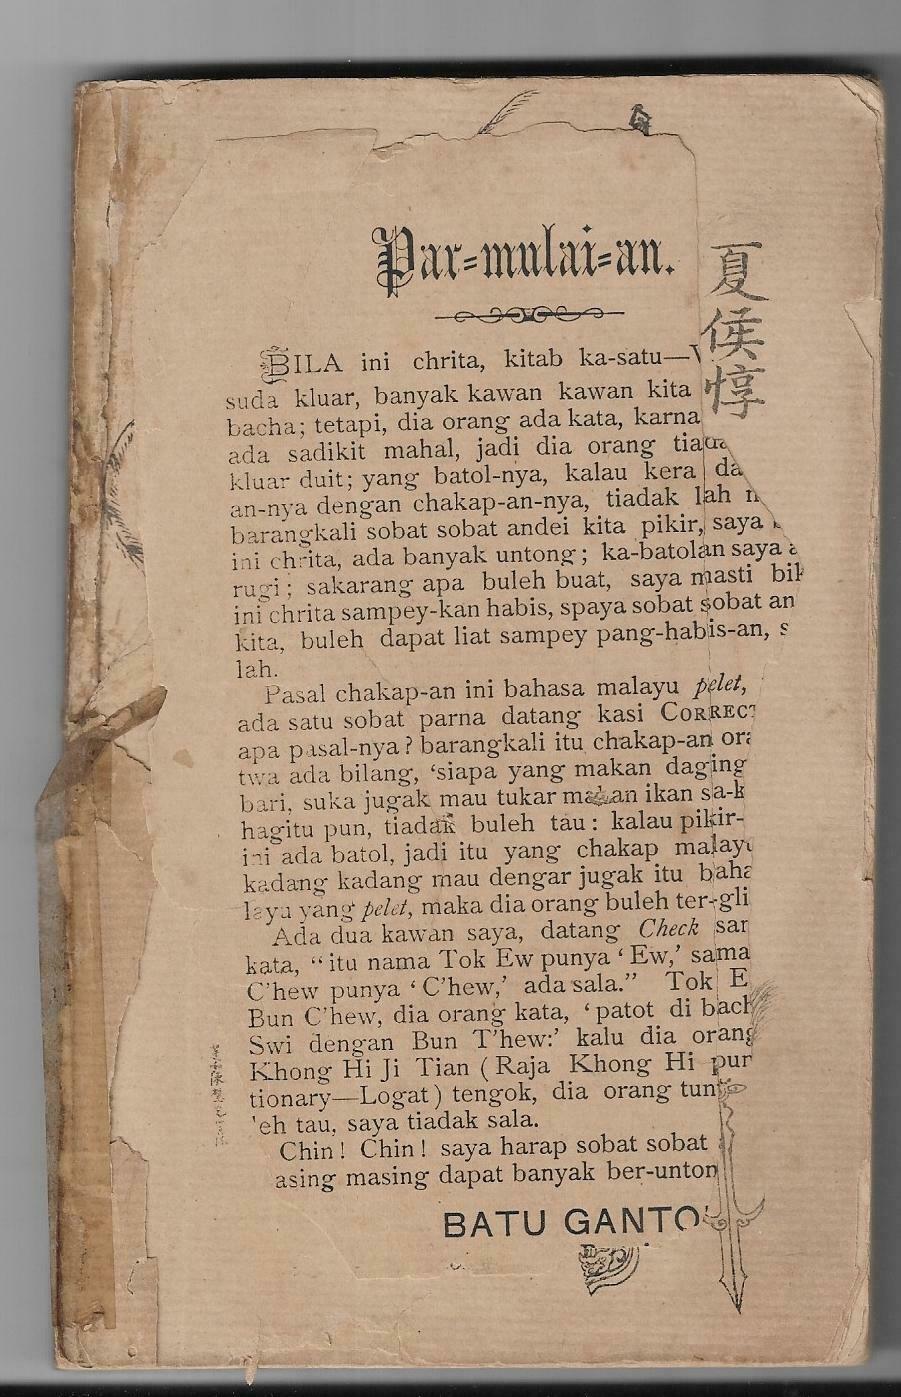 Par-mulai-an.
夏侯惇
BILA ini chrita, kitab ka-satu—
suda kluar, banyak kawan kawan kita
bacha; tetapi, dia orang ada kata, karna
ada sadikit mahal, jadi dia orang
kluar duit; yang batol-nya, kalau kera
an-nya dengan chakap-an-nya, tiadak lah
barangkali sobat sobat andei kita pikir, saya
ini chrita, ada banyak untong; ka-batolan saya
rugi; sakarang apa buleh buat, saya masti
ini chrita sampey-kan habis, spaya sobat sobat an
kita, buleh dapat liat sampey pang-habis-an,
lah.
Pasal chakap-an ini bahasa malayu pelet,
ada satu sobat parna datang kasi CORRECT
apa pasal-nya? barangkali itu chakap-an
twa ada bilang, ‘siapa yang makan daging
bari, suka jugak mau tukar makan ikan sa-k
hagitu pun, tiadak buleh tau: kalau pikir-
ini ada batol, jadi itu yang chakap malayu
kadang kadang mau dengar jugak itu baha
layu yang pelet, maka dia orang buleh ter-gli
Ada dua kawan saya, datang Check sam
kata, “itu nama Tok Ew punya ‘Ew,’ sama
C'hew punya ‘C'hew,’ ada sala.” Tok E
Bun C'hew, dia orang kata, ‘patot di bach
Swi dengan Bun T'hew:’ kalu dia orang
Khong Hi Ji Tian (Raja Khong Hi pun
tionary—Logat) tengok, dia orang
'eh tau, saya tiadak sala.
Chin! Chin! saya harap sobat sobat
asing masing dapat banyak ber-unton
BATU GANTO